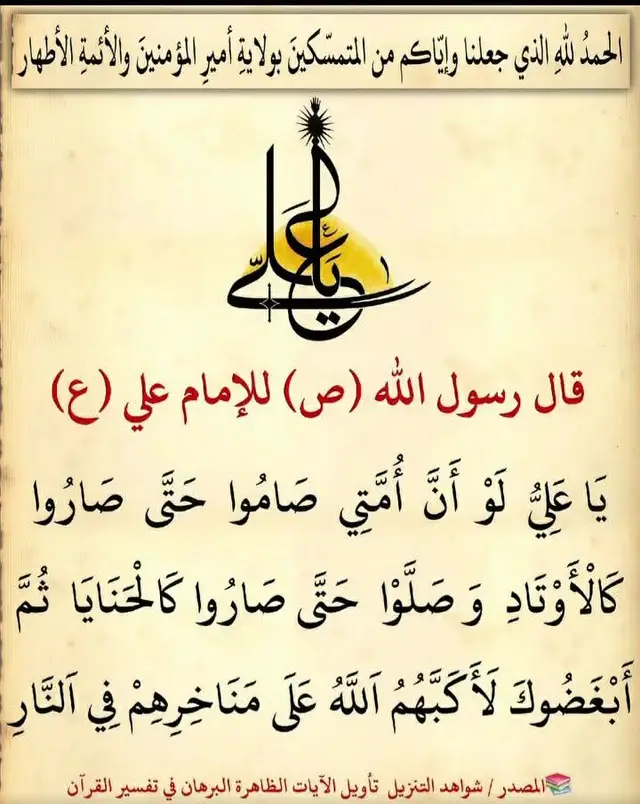 الحمدُ للهِ الذي جعلنا وإيّاكم من المتمسّكينَ بولايةِ أميرِ المؤمنينَ والأئمةِ الأطهار
يا علي
قال رسول الله (ص) للإمام علي (ع)
يَا عَلِيُّ لَوْ أَنَّ أُمَّتِي صَامُوا حَتَّى صَارُوا
كَالْأَوْتَادِ وَ صَلَّوْا حَتَّى صَارُوا كَالْحَنَايَا ثُمَّ
أَبْغَضُوكَ لَأَكَبَّهُمُ اَللَّهُ عَلَى مَنَاخِرِهِمْ فِي اَلنَّارِ
المصدر / شواهد التنزيل تأويل الآيات الظاهرة البرهان في تفسير القرآن